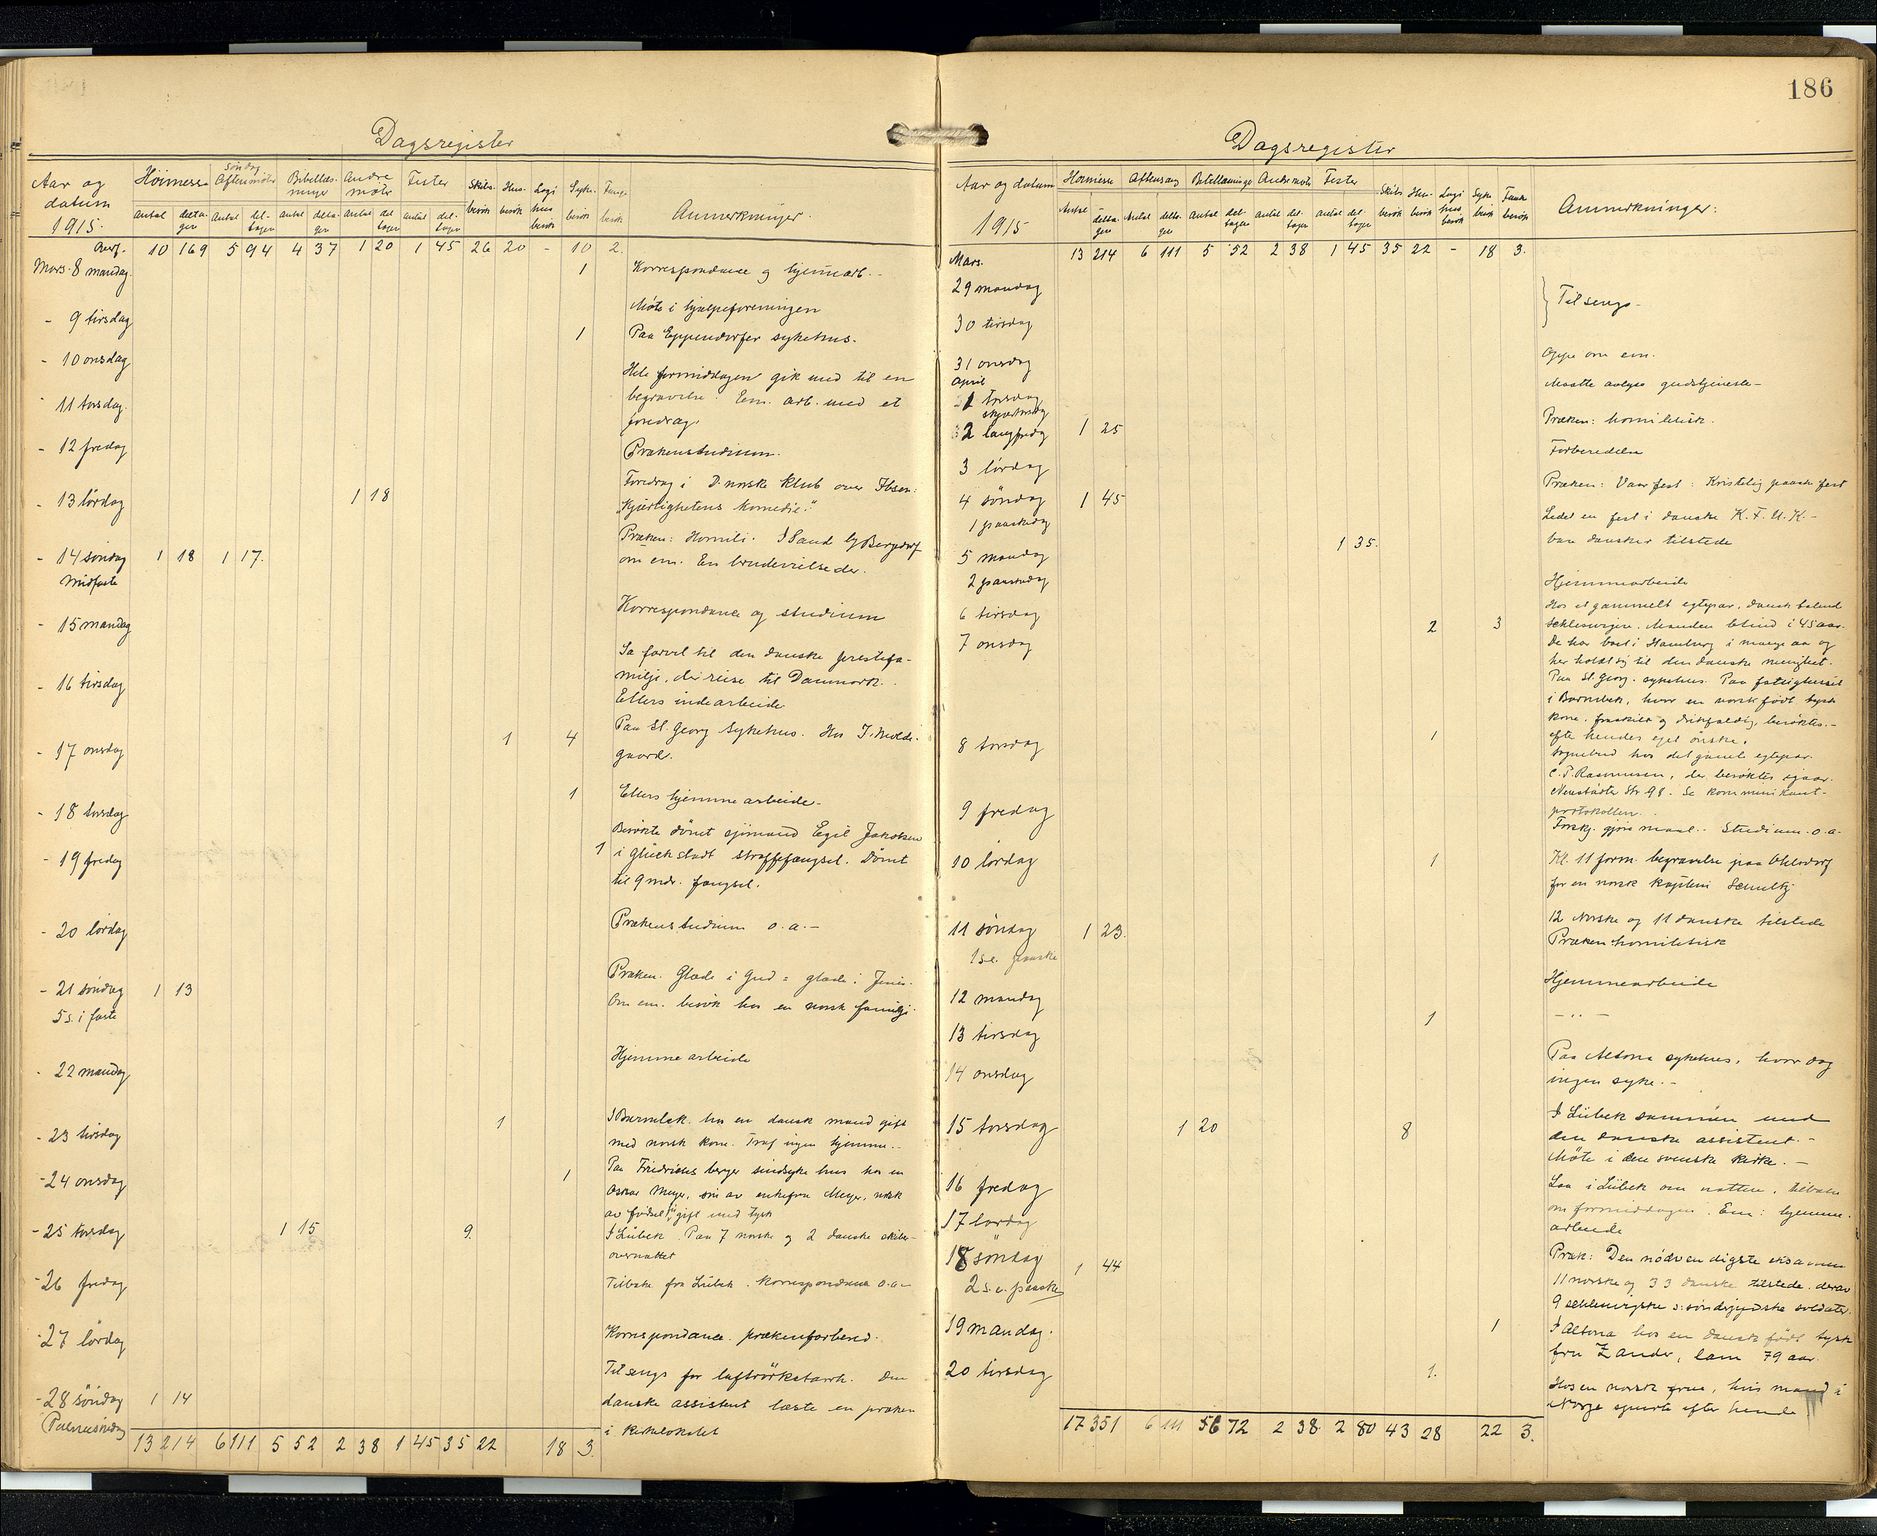 186
Dagsregister
Aar og datum 1915.
Höimesse Söndag Aftenmöte Bibellæsninger Andre möter Fester Skibs-besök Hus-besök Logihus besök Syke-besök Fange besök Anmerkninger.
antal deltagere antal deltagere antal deltagere antal deltagere antal deltagere
Overf. 10 169 5 94 4 37 1 20 1 45 26 20 - 10 2.
Mars. 8 mandag. 1 Korrespondance og hjemmearb. -
- 9 tirsdag Möte i hjælpeforeningen
1 Paa Eppendorfer sykehus.
- 10 onsdag
Hele formiddagen gik med til en
- 11 torsdag. begravelse. Em. arb. med et
foredrag.
- 12 fredag Prækenstudium.
- 13 lördag 1 18 Foredrag i D. norske klub over Ibsen:
"Kjærlighetens komedie".
- 14 söndag 1 18 1 17. Præken: Homili. I Sand b/ Bergedorf
Midfaste om em. En brudevielse der.
- 15 mandag Korrespondance og studium
- 16 tirsdag Sa farvel til den danske prestefa-
milje, der reise til Danmark.
Ellers indearbeide
- 17 onsdag 1 4 Paa St. Georg sykehus. Hos J. Molde-
gaard.
- 18 torsdag 1 Ellers hjemmearbeide -
- 19 fredag 1 Besökte dömt sjömand Egil Jakobsen
i Glückstadt straffefængsel. Dömt
til 9 mdr. fængsel.
- 20 lördag Prækenstudium o. a. -
- 21 söndag 1 13 Præken. Glæde i Gud = glæde i Jesus.
5 s. i faste Om em. besök hos en norsk familje.
- 22 mandag Hjemmearbeide
- 23 tirsdag 1 I Barmbek hos en dansk mand gift
med norsk kone. Traf ingen hjemme. -
- 24 onsdag 1 Paa Friedrichsberger sindsyke hus hos en
Oskar Meyer, sön av enkefru Meyer, norsk
av födsel, gift med tysk
- 25 torsdag 1 15 9. I Lübek. Paa 7 norske og 2 danske skibe-
overnattet
- 26 fredag Tilbake fra Lübek. Korrespondance o. a. -
- 27 lördag Korrespondance. prækenforbered.
- 28 söndag 1 14 Tilsengs for luftrörkatarrh. Den
Palmesöndag danske assistent læste en præken
i kirkelokalet
13 214 6 111 5 52 2 38 1 45 35 22 18 3.
Dagsregister
Aar og datum 1915
Höimesse Aftensang Bibellæsninge Andre möte Fester Skibs besök Hus-besök Logi hus besök Syke besök Fange besök Anmerkninger.
Antal deltagere Antal deltagere antal deltagere antal deltagere antal deltagere
Mars. 13 214 6 111 5 52 2 38 1 45 35 22 - 18 3.
29 mandag Tilsengs -
30 tirsdag
31 onsdag Oppe om em.
April
1 torsdag Maatte avlyse gudstjeneste -
skjærtorsdag
2 langfredg 1 25 Præken: homiletisk.
3 lördag Forberedelse
4 söndag 1 45 Præken: Vaar fest: Kristelig paaske fest
1 paaskedag
5 mandag 1 35. Ledet en fest i danske K. F. U. K. -
2 paaskedag bare dansker tilstede
6 tirsdag Hjemmearbeide
7 onsdag 2 3 Hos et gammelt egtepar, dansk talend
Schlesvigere. Manden blind i 45 aar.
De har boet i Hamburg i mange aar og
her holdt sig til den danske menighet.
Paa St. Georg. sykehus. Paa fattighuset
i Barmbek, hvor en norsk födt tysk
kone, fraskilt og drikfældig, besöktes. -
8 torsdag 1 efter hendes eget önske.
Sognebud hos det gamle egtepar.
C. P. Rasmussen, der besöktes igaar.
Neustädter Str 98. Se kommunikant-
protokollen.
9 fredag Forskj. gjöremaal. Studium o. a.
10 lördag 1 Kl. 11 form. begravelse paa Ohlsdorf
for en norsk kaptein
11 söndag 1 23. 12 Norske og 11 danske tilstede
1 s. e. paaske Præken homiletisk
12 mandag Hjemmearbeide
13 tirsdag 1 - " -
14 onsdag Paa Altona sykehus, hvor dog
ingen syke. -
15 torsdag 1 20 8 I Lübek sammen med
den danske assistent. -
Möte i den svenske kirke. -
16 fredag Laa i Lübek om natten, tilbake
om formiddagen. Em: hjemme-
17 lördag arbeide
18 söndag 1 44 Præk: Den nödvendigste eksamen
2 s. e. paaske 11 norske og 33 danske tilstede, derav
9 schlesvigske o: sönderjydske soldater.
19 mandag. 1 I Altona hos en dansk födt tysk
fru Zander, lam 79 aar.
20 tirsdag 1. Hos en norsk frue, hvis mand i
Norge spurte efter hende
17 351 6 111 5672 2 38 2 80 43 28 22 3.